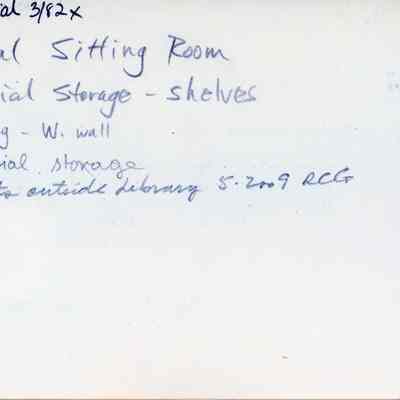 ial 3/82x
al Sitting Room
ial Storage - shelves
g - W. wall
ial storage
to outside Library 5-2009 RCG